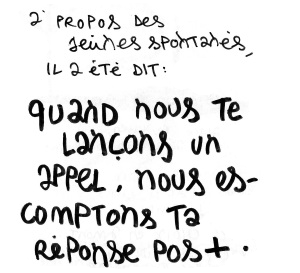 2' PROPOS DES
JEUNES SPONTANÉS,
IL 2 ÉTÉ DIT:
QUAND NOUS TE
LANÇONS UN
APPEL, NOUS ES-
COMPTONS TA
RÉPONSE POS+.